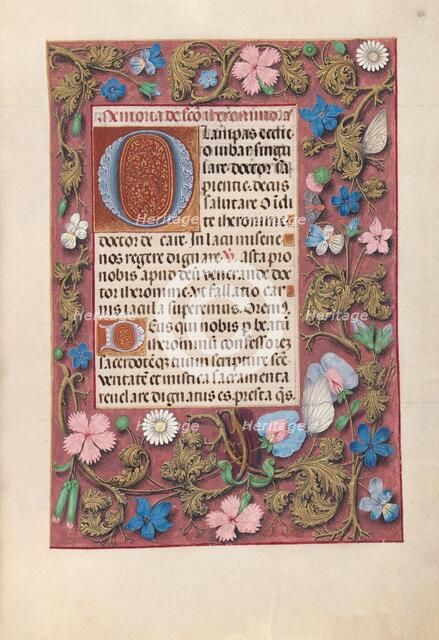 Memoria de sco iheronimo. a
O Lampas eccłie
o iubar singu
lare doctor sa
pientie. decus
salutare O ide
te iheronime
doctor de care. In lacu miserie
nos regere dignare. V asta pro
nobis apud deū venerande doc
tor iheronime. Vt fallatio car
nis nichil superemus. Oremꝰ
Deus qui nobis p beatū
iheronimū confessorez
sacerdoteqꝫ tuum scripture scē
veritatē et mistica sacramenta
revelare dignatus es. presta q̄s
Heritage
Heritage
Heritage
Heritage
Heritage
Heritage
Heritage